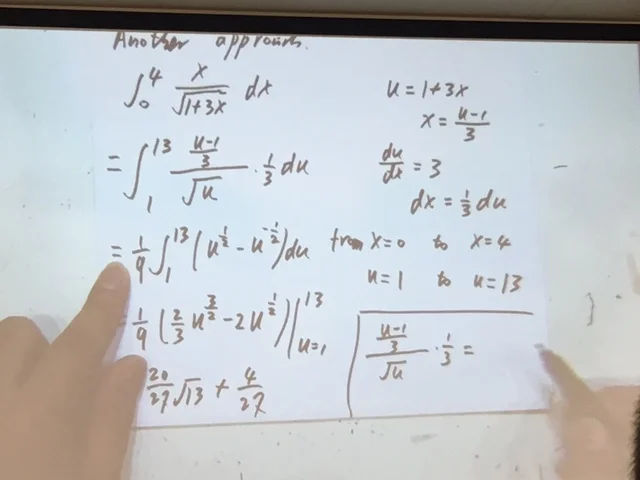 Another approach.
∫₀⁴ x/√(1+3x) dx
u = 1+3x
x = (u-1)/3
= ∫₁¹³ ((u-1)/3)/√u · 1/3 du
du/dx = 3
dx = 1/3 du
= 1/9 ∫₁¹³ (u^(1/2) - u^(-1/2)) du
from x=0 to x=4
u=1 to u=13
1/9 (2/3 u^(3/2) - 2u^(1/2)) |_(u=1)^13
((u-1)/3)/√u · 1/3 =
20/27 √13 + 4/27